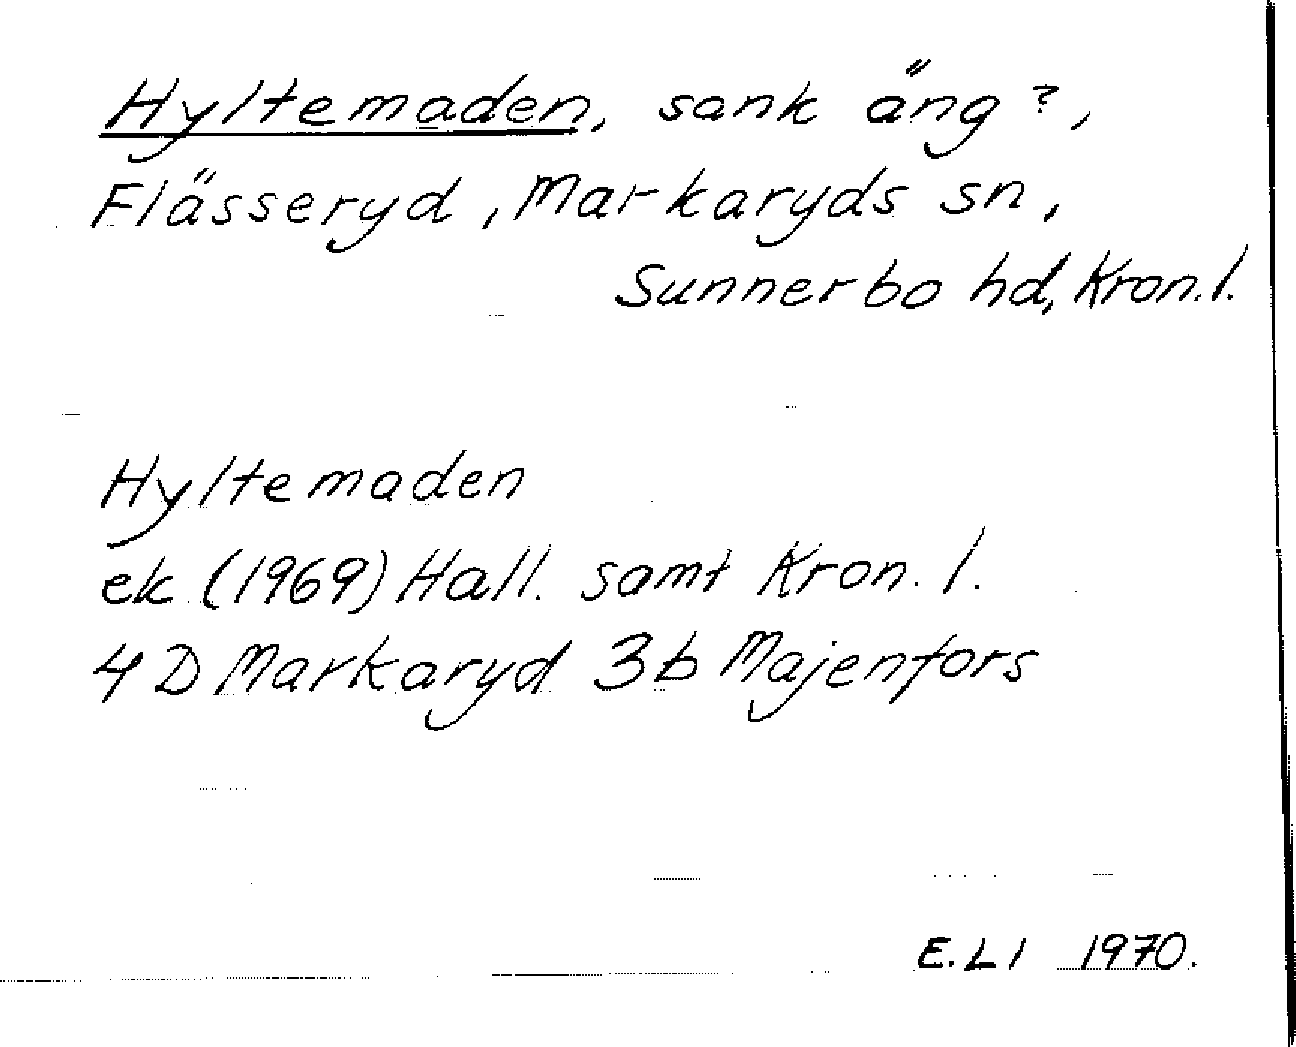 Hyltemaden, sank äng?,
Flässeryd, Markaryds sn,
Sunnerbo hd, Kron.l.
Hyltemaden
ek (1969) Hall. samt Kron. l.
4 D Markaryd 3b Majenfors
E. L l 1970.